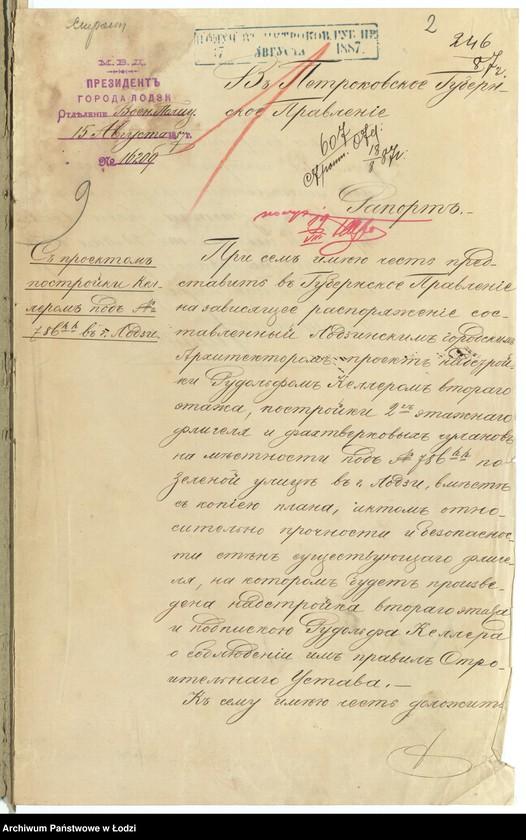 2
246
87 г.
ПОЛУЧ. ВЪ ПЕТРОКОВ. ГУБ. ПР.
17 АВГУСТА 1887.
М. В. Д.
ПРЕЗИДЕНТЪ
ГОРОДА ЛОДЗИ
Отдѣленіе Воен. Полиц.
15 Августа 1887 г.
№ 16209
9
Въ Петроковское Губерн-
ское Правленіе
607
18/8 87 г.
Рапортъ.
Съ проектомъ
постройки Кел-
леромъ подъ №
786 въ г. Лодзи.
При семъ имѣю честь пред-
ставить въ Губернское Правленіе
на зависящее распоряженіе сос-
тавленный Лодзинскимъ городскимъ
Архитекторомъ проектъ надстрой-
ки Рудольфомъ Келлеромъ втораго
этажа, постройки 2хъ этажнаго
флигеля и фахтверковыхъ чулановъ
на мѣстности подъ № 786 по
Зеленой улицѣ въ г. Лодзи, вмѣстѣ
съ копіею плана, актомъ отно-
сительно прочности и безопаснос-
ти стѣнъ существующаго флиге-
ля, на которомъ будетъ произве-
дена надстройка втораго этажа
и подпискою Рудольфа Келлера
о соблюденіи имъ правилъ Стро-
ительнаго Устава.—
Къ сему имѣю честь доложить
Archiwum Państwowe w Łodzi